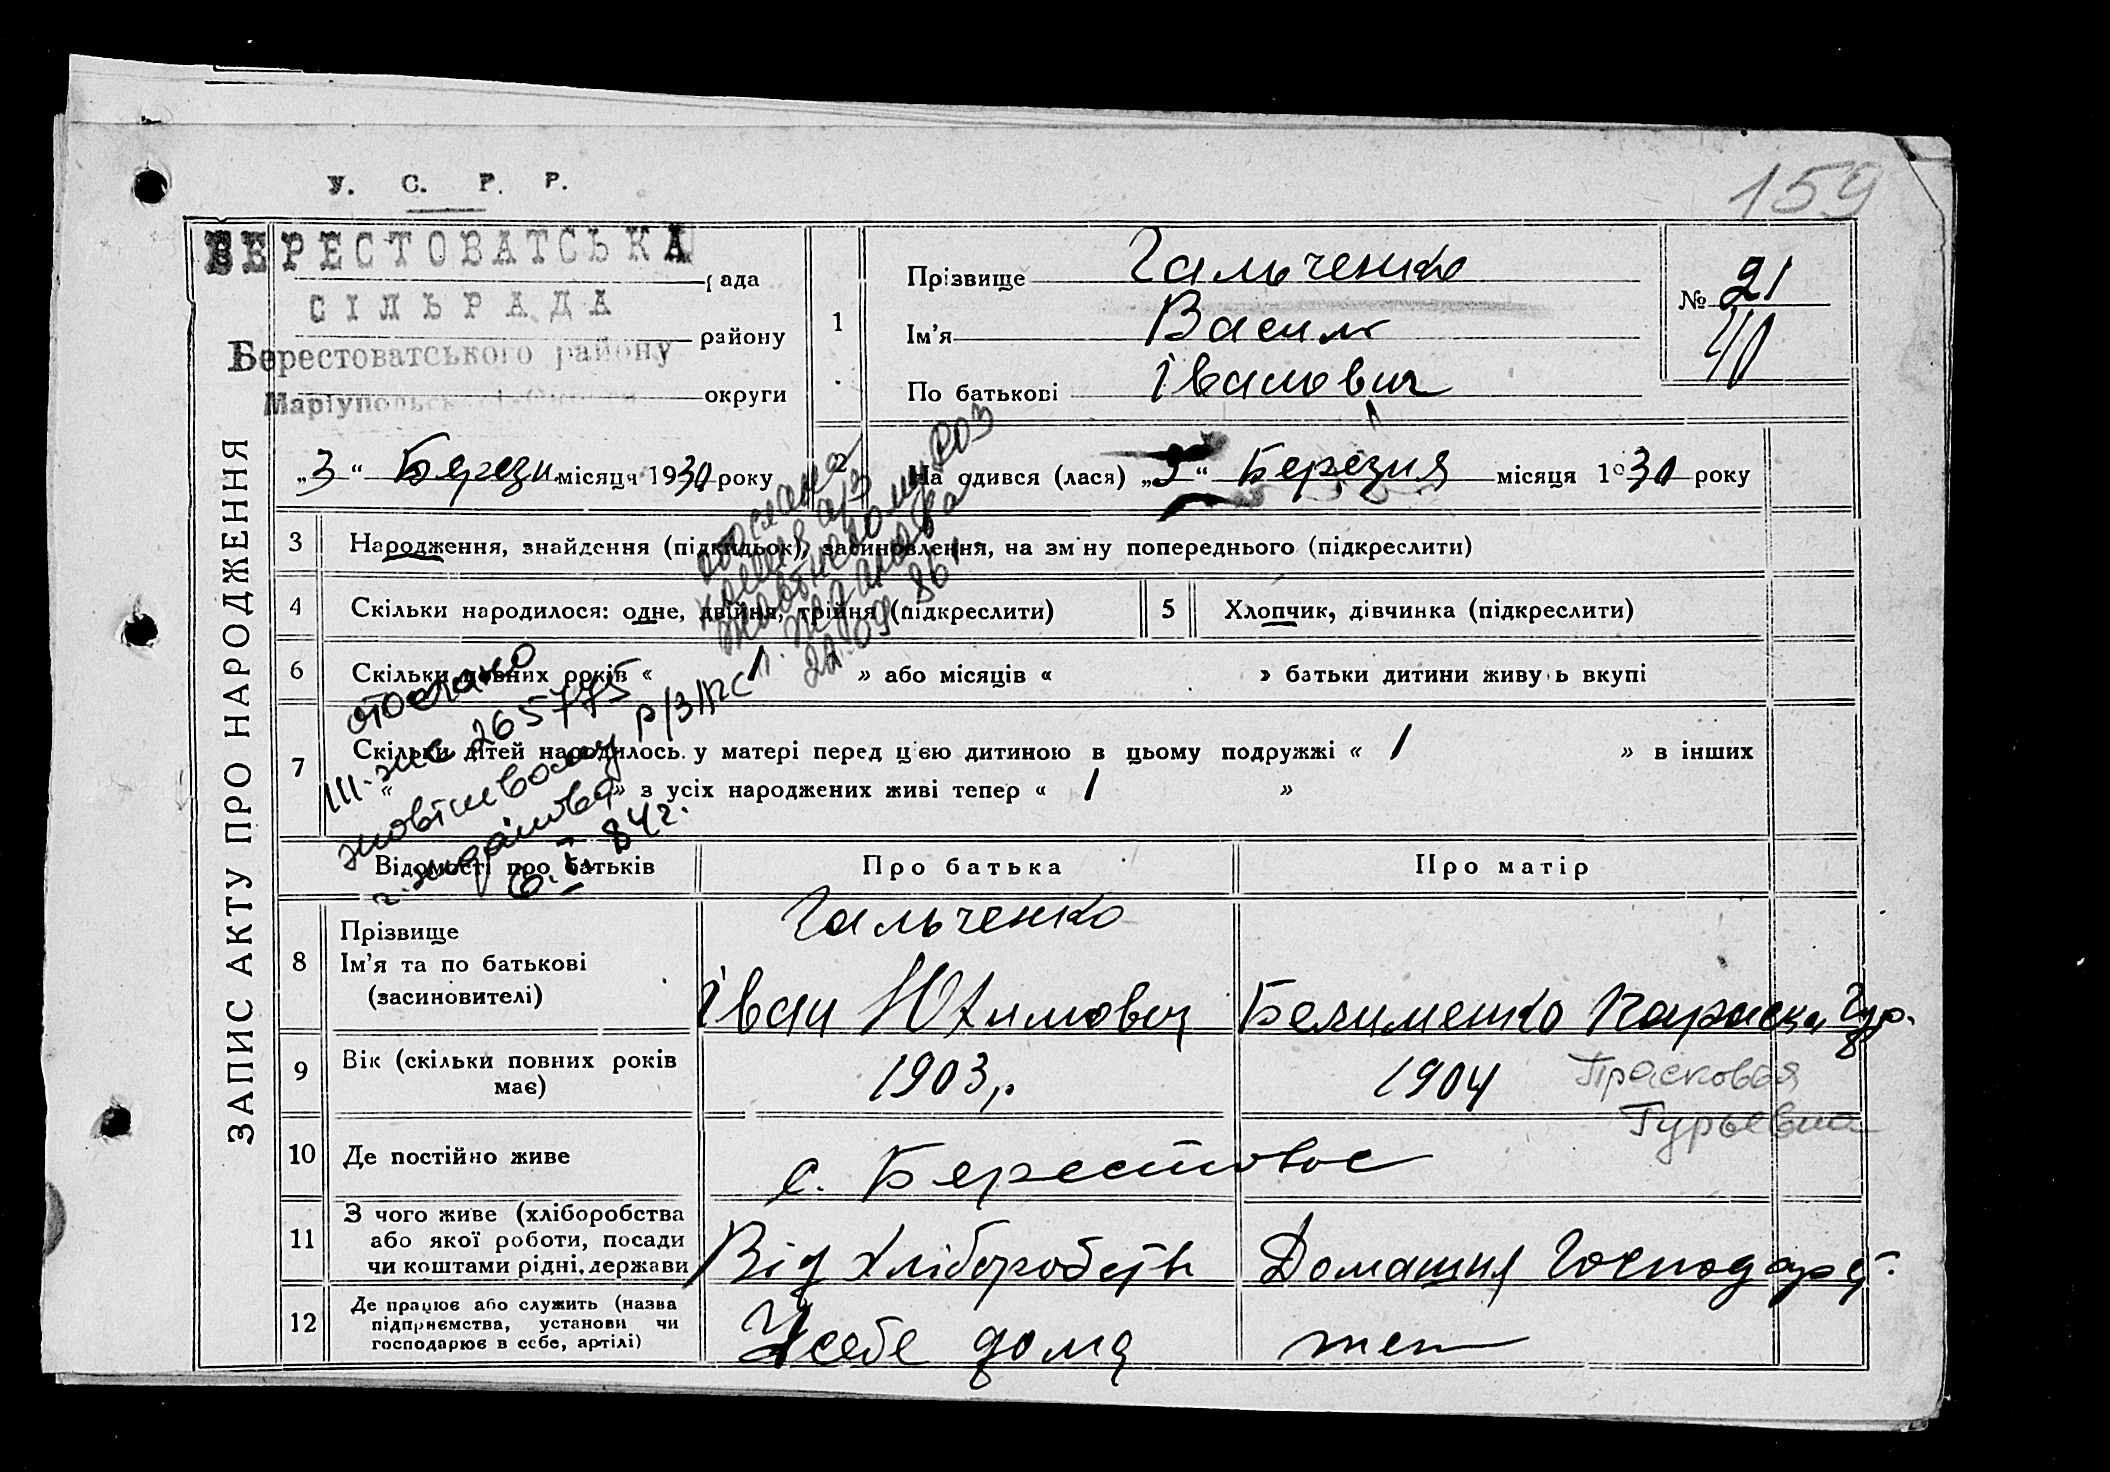 159
У. С. Р. Р.
ЗАПИС АКТУ ПРО НАРОДЖЕННЯ
БЕРЕСТОВАТСЬКА рада
СІЛЬРАДА району
Берестоватського району
Маріупольськ округи
„3“ Березн місяця 1930 року
1
Прізвище Гальченко
Ім'я Василь
По батькові Іванович
№ 21
2
На одився (лася) „ “ Березня місяця 1930 року
3 Народження, знайдення (підкидьок), засиновлення, на зміну попереднього (підкреслити)
4 Скільки народилося: одне, двійня, трійня (підкреслити)
5 Хлопчик, дівчинка (підкреслити)
6 Скільки повних років « » або місяців « » батьки дитини живуть вкупі
7 Скільки дітей народилось у матері перед цією дитиною в цьому подружжі « 1 » в інших
« » з усіх народжених живі тепер « 1 »
отослано
III-жс 265775
жовтневому р/ЗАГС
г. Жданова
84 г.
отослана
Жданова
22.09 86 г.
Відомості про батьків Про батька Про матір
8 Прізвище
Ім'я та по батькові
(засиновителі)
Гальченко
Іван Юхимович
Параска Гур.
Прасковья
Гурьевна
9 Вік (скільки повних років
має)
1903 р. 1904
10 Де постійно живе с. Берестовое
11 З чого живе (хліборобства
або якої роботи, посади
чи коштами рідні, держави
Від хліборобств Домашня Господарст.
12 Де працює або служить (назва
підприємства, установи чи
господарює в себе, артілі)
У себе дома теж